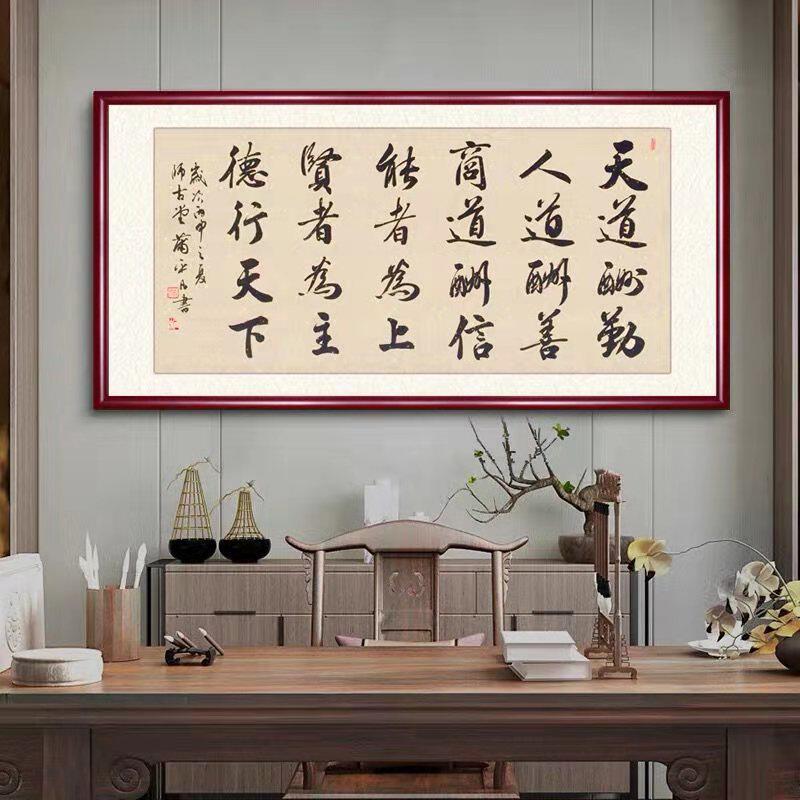 天道酬勤
人道酬善
商道酬信
能者為上
賢者為主
德行天下
歲次丙申之夏
師古堂書